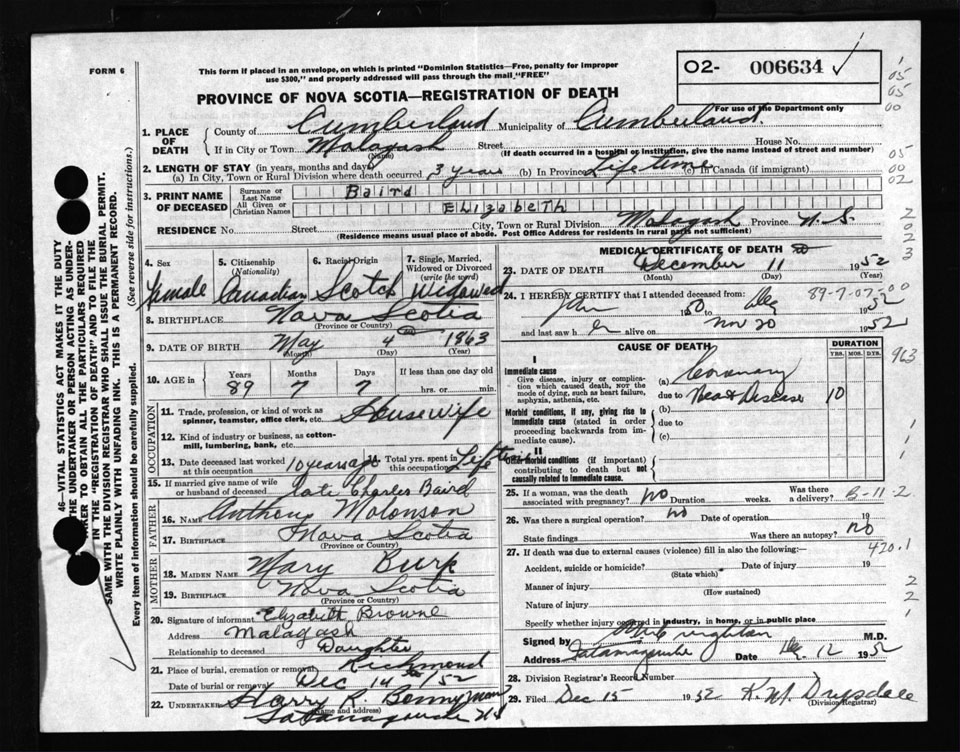 FORM 6
This form if placed in an envelope, on which is printed "Dominion Statistics—Free, penalty for improper
use $300," and properly addressed will pass through the mail "FREE"
PROVINCE OF NOVA SCOTIA—REGISTRATION OF DEATH
02- 006634
For use of the Department only
1. PLACE OF DEATH
County of Cumberland Municipality of Cumberland.
If in City or Town Malagash Street House No.
(Name) (If death occurred in a hospital or institution, give the name instead of street and number)
2. LENGTH OF STAY (in years, months and days)
(a) In City, Town or Rural Division where death occurred 3 years (b) In Province Life time (c) In Canada (if immigrant)
3. PRINT NAME OF DECEASED
Surname or Last Name Baird
All Given or Christian Names Elizabeth
RESIDENCE No. Street City, Town or Rural Division Malagash Province N. S.
(Residence means usual place of abode. Post Office Address for residents in rural parts not sufficient)
4. Sex Female
5. Citizenship (Nationality) Canadian
6. Racial Origin Scotch
7. Single, Married, Widowed or Divorced (write the word) Widowed
8. BIRTHPLACE Nova Scotia
(Province or Country)
9. DATE OF BIRTH May 4 1863
(Month) (Day) (Year)
10. AGE in Years Months Days If less than one day old
89 7 7 hrs. or min.
OCCUPATION
11. Trade, profession, or kind of work as spinner, teamster, office clerk, etc. Housewife
12. Kind of industry or business, as cotton-mill, lumbering, bank, etc.
13. Date deceased last worked at this occupation 10 years ago 14. Total yrs. spent in this occupation Lifetime
15. If married give name of wife or husband of deceased late Charles Baird
FATHER
16. NAME Anthony Molonson
17. BIRTHPLACE Nova Scotia
(Province or Country)
MOTHER
18. MAIDEN NAME Mary Burk
19. BIRTHPLACE Nova Scotia
(Province or Country)
20. Signature of informant Elizabeth Browne
Address Malagash
Relationship to deceased Daughter
21. Place of burial, cremation or removal Richmond
Date of burial or removal Dec 14th /52
22. UNDERTAKER Harry K. Bonnyman
(Name and address)
Tatamagouche N S
MEDICAL CERTIFICATE OF DEATH
23. DATE OF DEATH December 11 1952
(Month) (Day) (Year)
24. I HEREBY CERTIFY that I attended deceased from:
Jan 1950 to Dec 1952
and last saw h er alive on Nov 20 1952
89-7-07-00
CAUSE OF DEATH
DURATION
YRS. MOS. DYS.
I
Immediate cause
Give disease, injury or complication which caused death, NOT the mode of dying, such as heart failure, asphyxia, asthenia, etc.
(a) Coronary
due to Heart Disease 10
Morbid conditions, if any, giving rise to immediate cause (stated in order proceeding backwards from immediate cause).
(b)
due to
(c)
II
Other morbid conditions (if important) contributing to death but not causally related to immediate cause.
25. If a woman, was the death associated with pregnancy? NO Duration weeks. Was there a delivery?
B-11-2
26. Was there a surgical operation? no Date of operation 19
State findings Was there an autopsy? no
27. If death was due to external causes (violence) fill in also the following:—
420.1
Accident, suicide or homicide? Date of injury 19
(State which)
Manner of injury
(How sustained)
Nature of injury
Specify whether injury occurred in industry, in home, or in public place
Signed by M.D.
Address Tatamagouche Date Dec. 12 1952
28. Division Registrar's Record Number
29. Filed Dec 15 1952 K. M. Drysdale
(Division Registrar)
46—VITAL STATISTICS ACT MAKES IT THE DUTY
THE UNDERTAKER OR PERSON ACTING AS UNDER-
TAKER TO OBTAIN ALL THE PARTICULARS REQUIRED
IN THE "REGISTRATION OF DEATH" AND TO FILE THE
SAME WITH THE DIVISION REGISTRAR WHO SHALL ISSUE THE BURIAL PERMIT.
WRITE PLAINLY WITH UNFADING INK. THIS IS A PERMANENT RECORD.
Every item of information should be carefully supplied. (See reverse side for instructions.)
1
05
05
00
05
00
02
2
0
2
3
963
1
1
2
2
1